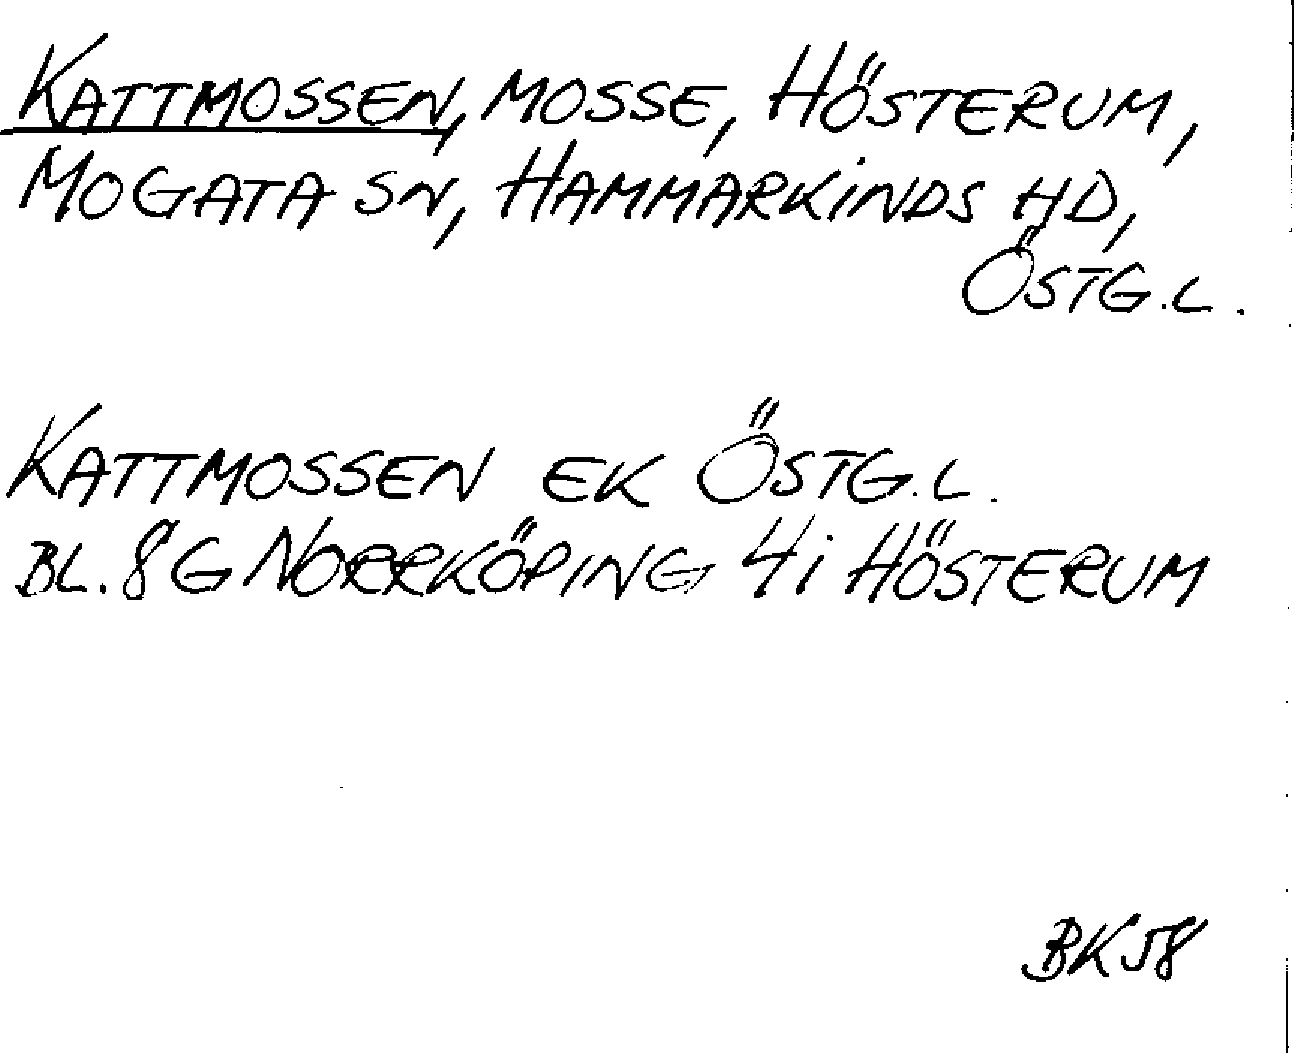 KATTMOSSEN, MOSSE, HÖSTERUM,
MOGATA SN, HAMMARKINDS HD,
ÖSTG.L.
KATTMOSSEN EK ÖSTG.L.
BL. 8G NORRKÖPING 4i HÖSTERUM
BK58